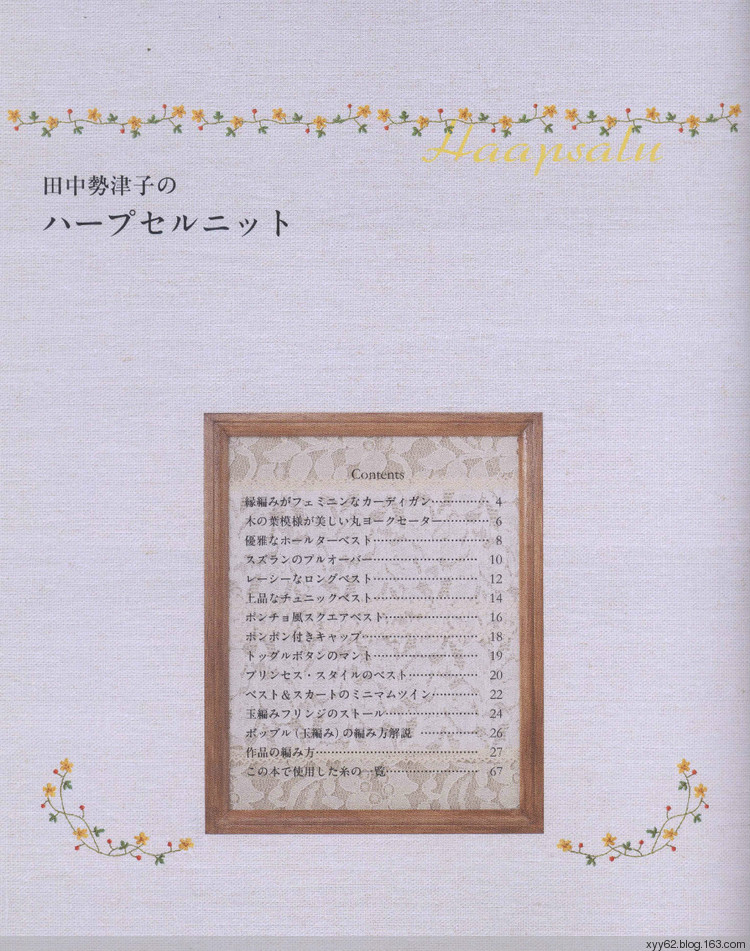 Haapsalu
田中勢津子の
ハープセルニット
Contents
縁編みがフェミニンなカーディガン…………… 4
木の葉模様が美しい丸ヨークセーター………… 6
優雅なホールターベスト………………………… 8
スズランのプルオーバー………………………… 10
レーシーなロングベスト………………………… 12
上品なチュニックベスト………………………… 14
ポンチョ風スクエアベスト……………………… 16
ポンポン付きキャップ…………………………… 18
トッグルボタンのマント………………………… 19
プリンセス・スタイルのベスト………………… 20
ベスト＆スカートのミニマムツイン………… 22
玉編みフリンジのストール……………………… 24
ボップル（玉編み）の編み方解説 …………… 26
作品の編み方……………………………………… 27
この本で使用した糸の一覧……………………… 67
xyy62.blog.163.com